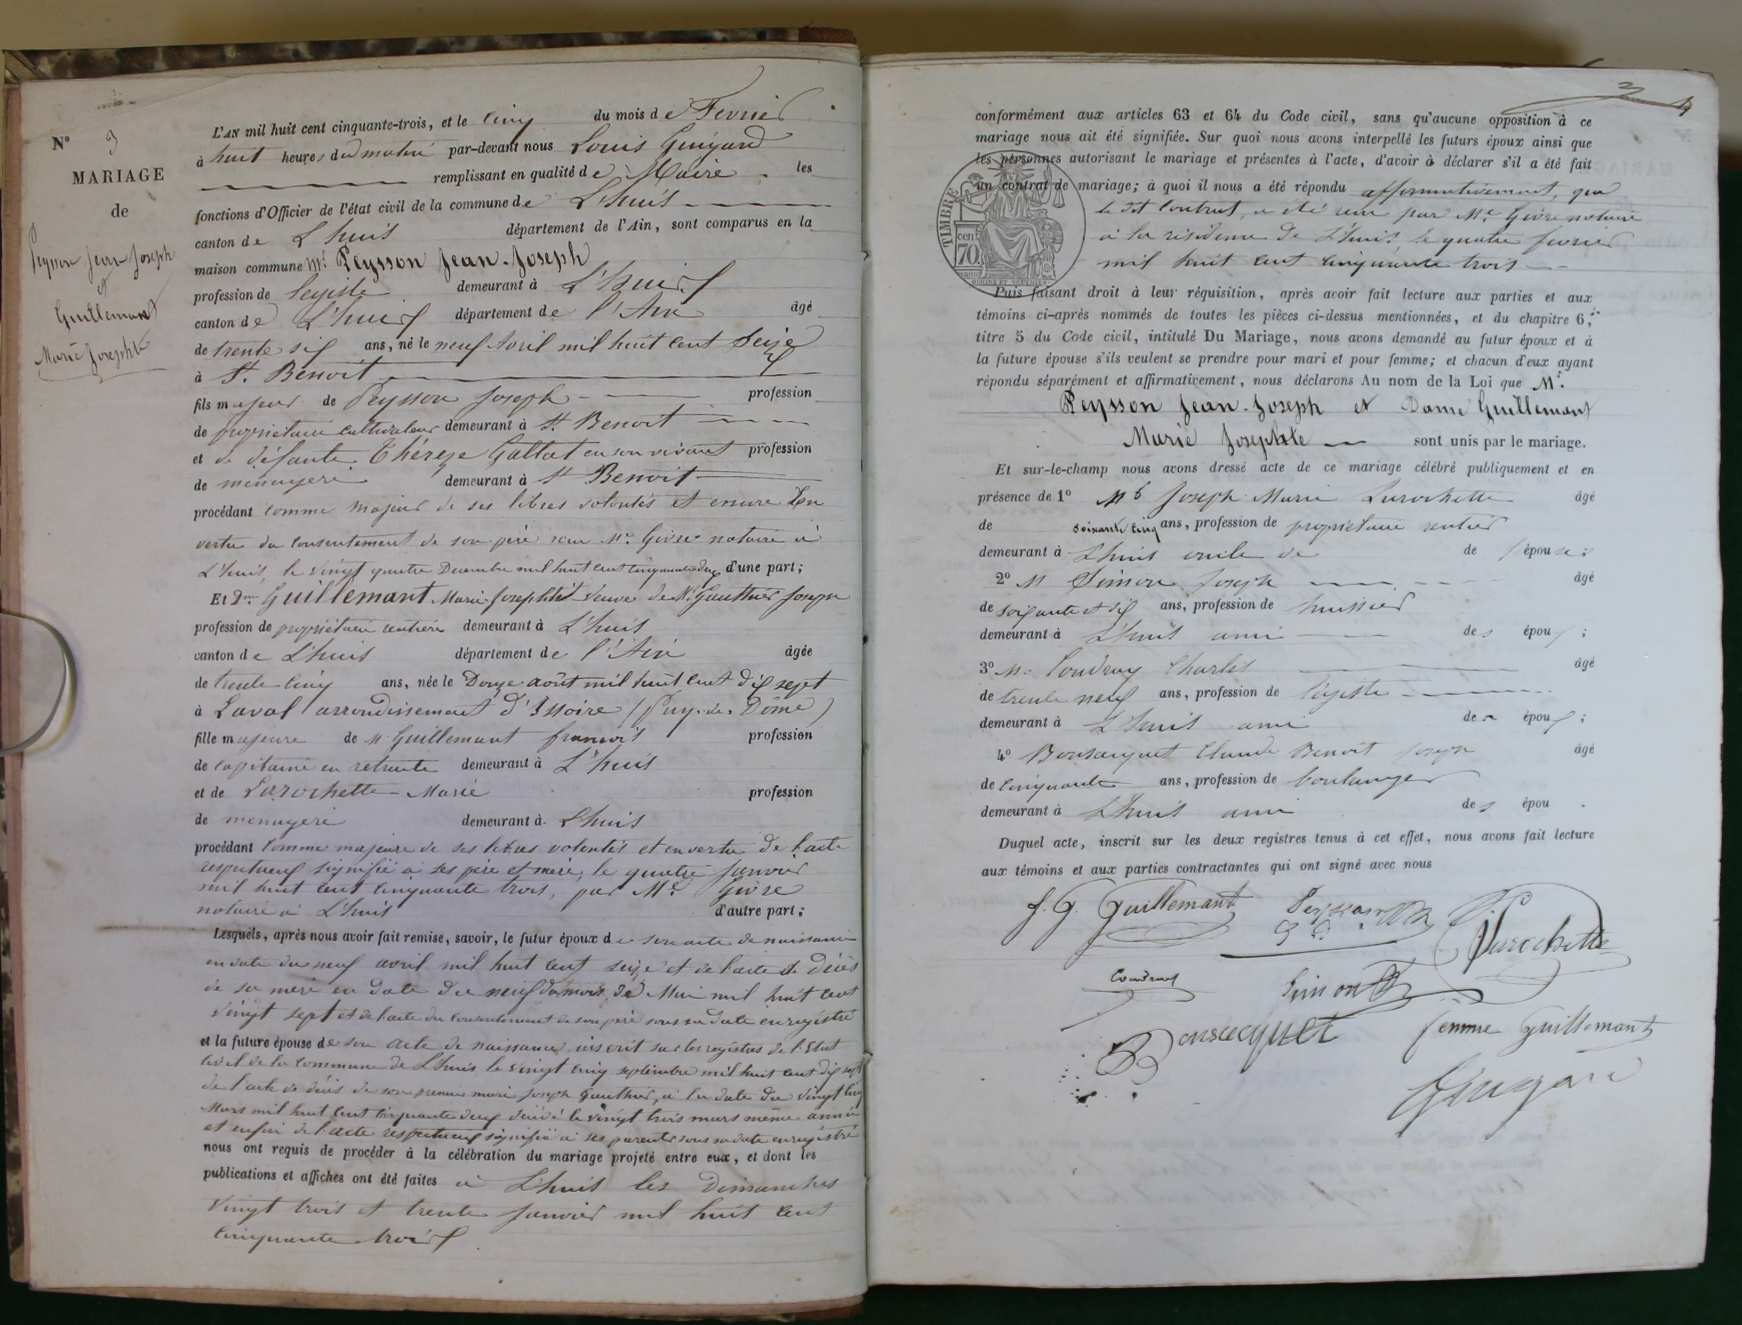 N° 3
MARIAGE
de
Peysson Jean Joseph
et
Guillemant
Marie Josephte
L'AN mil huit cent cinquante-trois, et le cinq du mois de Fevrier
à huit heures du matin par-devant nous Louis Guigard
remplissant en qualité de Maire les
fonctions d'Officier de l'état civil de la commune de L'huis
canton de L'huis département de l'Ain, sont comparus en la
maison commune Mr Peysson Jean-Joseph
profession de legiste demeurant à L'huis
canton de L'huis département de l'Ain âgé
de trente six ans, né le neuf Avril mil huit cent Seize
à St. Benoit
fils majeur de Peysson Joseph profession
de propriétaire cultivateur demeurant à St Benoit
et de défunte Thérèze Gallat en son vivant profession
de menagere demeurant à St Benoit
procédant comme majeur de ses libres volontés et encore En
vertu du consentement de son père reçu Me Givre notaire à
L'huis, le vingt quatre Decembre mil huit cent cinquante deux d'une part;
Et Dme Guillemant Marie Josephte veuve de Mr Gauthier Joseph
profession de propriétaire rentière demeurant à L'huis
canton de L'huis département de l'Ain âgée
de trente cinq ans, née le Douze août mil huit cent dix sept
à Laval arrondissement d'Issoire (Puy-de-Dôme)
fille majeure de Mr Guillemant françois profession
de capitaine en retraite demeurant à L'huis
et de Larochette Marie profession
de menagere demeurant à L'huis
procédant comme majeure de ses libres volontés et en vertu de l'acte
respectueux signifié à ses père et mère, le quatre janvier
mil huit cent cinquante trois, par Me Givre
notaire à L'huis d'autre part;
Lesquels, après nous avoir fait remise, savoir, le futur époux de son acte de naissance
en date du neuf avril mil huit cent seize et de l'acte de décès
de sa mère en date du neuf du mois de Mai mil huit cent
vingt sept et de l'acte du consentement de son père sous sa date enregistré
et la future épouse de son acte de naissance inscrit sur les registres de l'Etat
civil de la commune de L'huis le vingt cinq septembre mil huit cent dix sept
de l'acte de décès de son premier mari Joseph Gauthier, à la date du vingt cinq
Mars mil huit cent cinquante deux décédé le vingt trois mars même année
et enfin de l'acte respectueux signifié à ses parents sous sa date enregistré
nous ont requis de procéder à la célébration du mariage projeté entre eux, et dont les
publications et affiches ont été faites à L'huis les Dimanches
vingt trois et trente Janvier mil huit cent
cinquante trois
conformément aux articles 63 et 64 du Code civil, sans qu'aucune opposition à ce
mariage nous ait été signifiée. Sur quoi nous avons interpellé les futurs époux ainsi que
les personnes autorisant le mariage et présentes à l'acte, d'avoir à déclarer s'il a été fait
un contrat de mariage; à quoi il nous a été répondu affirmativement, que
le dit Contrat, a été reçu par Me Givre notaire
à la résidence de L'huis, le quatre fevrier
mil huit cent cinquante trois
TIMBRE
cent 70.
Puis faisant droit à leur réquisition, après avoir fait lecture aux parties et aux
témoins ci-après nommés de toutes les pièces ci-dessus mentionnées, et du chapitre 6,
titre 5 du Code civil, intitulé Du Mariage, nous avons demandé au futur époux et à
la future épouse s'ils veulent se prendre pour mari et pour femme; et chacun d'eux ayant
répondu séparément et affirmativement, nous déclarons Au nom de la Loi que Mr.
Peysson Jean-Joseph et Dame Guillemant
Marie Josephte sont unis par le mariage.
Et sur-le-champ nous avons dressé acte de ce mariage célébré publiquement et en
présence de 1° Mr Joseph Marie Larochette âgé
de soixante cinq ans, profession de propriétaire rentier
demeurant à L'huis oncle de de l'épouse;
2° Mr Simon Joseph âgé
de soixante et dix ans, profession de huissier
demeurant à L'huis ami des époux;
3° Mr Coudray Charles âgé
de trente neuf ans, profession de légiste
demeurant à L'huis ami des époux;
4° Bonsacquet Claude Benoit Joseph âgé
de cinquante ans, profession de boulanger
demeurant à L'huis ami des épou
Duquel acte, inscrit sur les deux registres tenus à cet effet, nous avons fait lecture
aux témoins et aux parties contractantes qui ont signé avec nous
J. G. Guillemant
Peysson
Larochette
Simon
Bonsacquet
femme Guillemant
Guigard